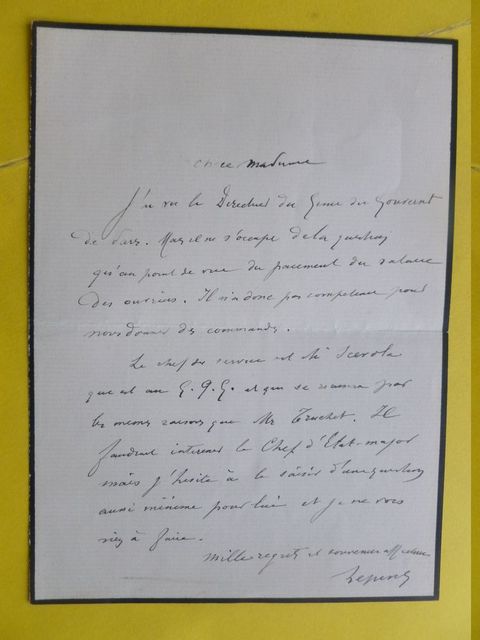 Chère Madame
J'ai vu le Directeur du Genie du Gouvernt
de Paris. Mais il ne s'occupe de la question
qu'au point de vue du paiement du salaire
des ouvrières. Il n'a donc pas compétence pour
vous donner des commandes.
Le chef du service est Mr Scevola
qui est au G.Q.G. et qui se récusera par
les memes raisons que Mr Truchet. Il
faudrait intéresser le Chef d'Etat-major
mais j'hésite à le saisir d'une question
aussi minime pour lui et je ne vois
rien à faire.
Mille regrets et souvenirs affectueux
Lepine